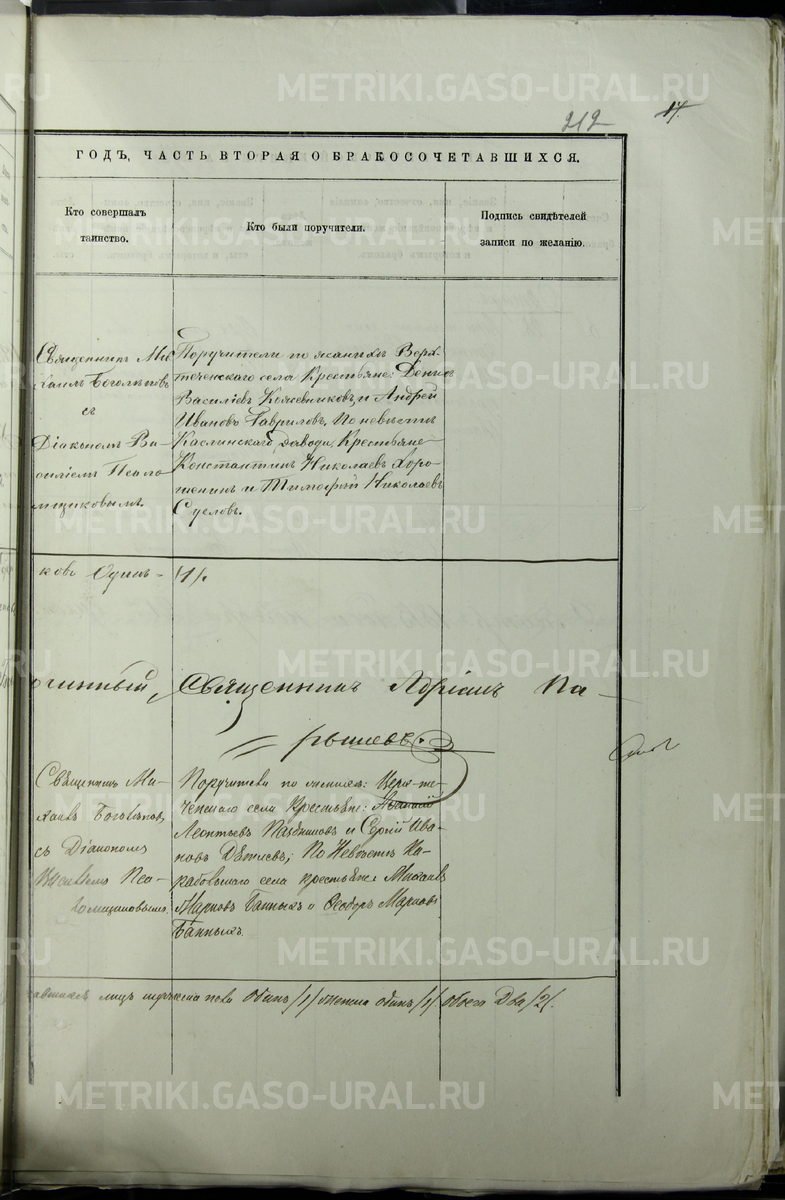 212
17.
ГОДЪ, ЧАСТЬ ВТОРАЯ О БРАКОСОЧЕТАВШИХСЯ.
Кто совершалъ
таинство.
Кто были поручители.
Подпись свидѣтелей
записи по желанію.
Священникъ Ми
хаилъ Боголѣповъ
съ
Діакономъ Ва-
силіемъ Псало
мщиковымъ.
Поручители по женихѣ Верх-
теченскаго села Крестьяне: Денисъ
Василіевъ Кожевниковъ и Андрей
Ивановъ Гавриловъ, По невѣстѣ
Каслинскаго завода, Крестьяне
Константинъ Николаевъ Хоро-
шенинъ и Тимофей Николаевъ
Суеловъ.
ковъ Одинъ- /1/.
чинный, Священникъ Адріанъ
Священникъ Ми-
хаилъ Боголѣповъ,
съ Діакономъ
Василіемъ Пса-
ломщиковымъ
Поручители по женихѣ: Верх-те-
ченскаго села крестьяне:
Леонтьевъ и Сергій Ива-
новъ По Невѣстѣ Ка-
рабольскаго села крестьяне Михаилъ
Марковъ Банныхъ и Ѳеодоръ Марковъ
Банныхъ.
лицъ мужеска пола Одинъ /1/ женска одинъ /1/ обоего Два /2/.
METRIKI.GASO-URAL.RU